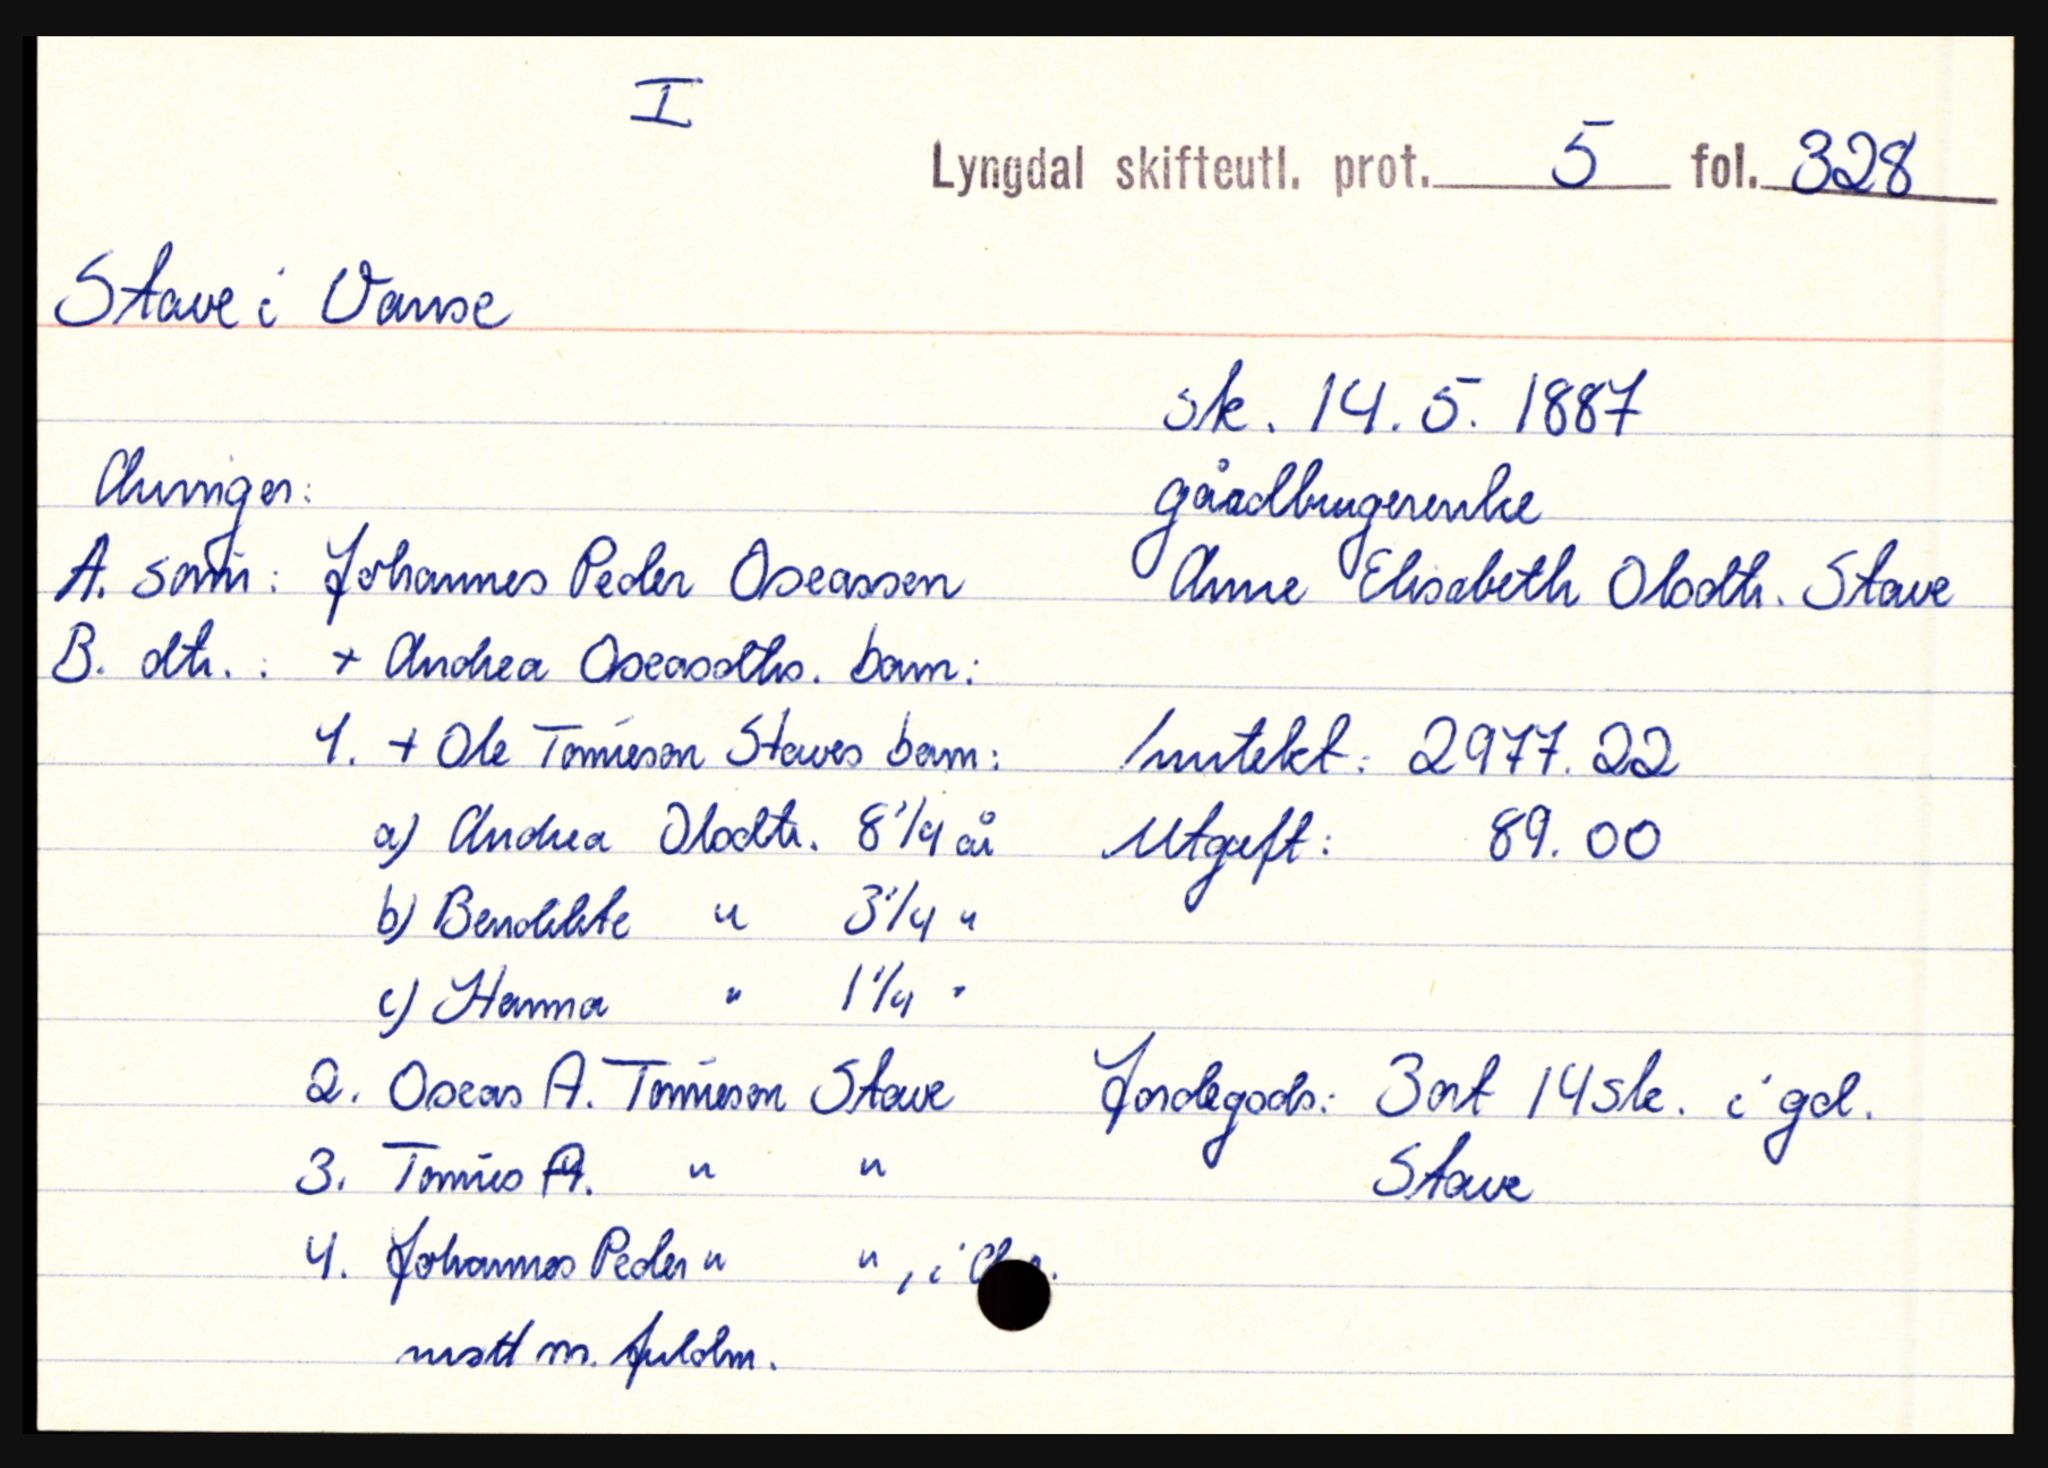 I
Lyngdal skifteutl. prot. 5 fol. 328
Stave i Vanse
sk. 14.5.1887
gårdbrugerenke
Anne Elisabeth Olsdtr. Stave
Arvinger:
A. sønn: Johannes Peder Oseassen
B. dtr. : + Andrea Oseasdtrs. barn:
1. + Ole Tønnesen Staves barn:
a) Andrea Olsdtr. 8 1/4 år
b) Bendikte " 3 1/4 "
c) Hanna " 1 1/4 "
2. Oseas A. Tønnesen Stave
3. Tønnes A. " "
4. Johannes Peder " " , i
møtt m. fuldm.
Inntekt: 2977.22
Utgift: 89.00
Jordegods: 3 ort 14 sk. i gd.
Stave